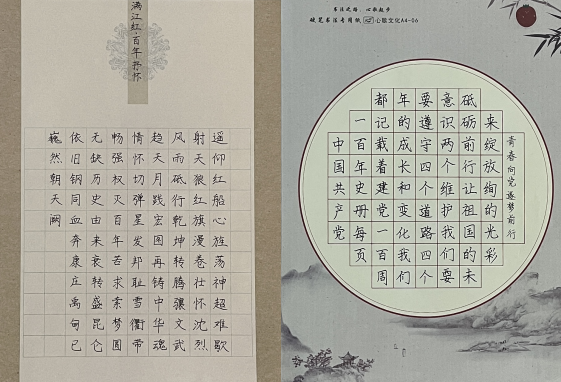 满江红·百年抒怀
遥仰红船心旌荡神超难歇
射天狼红旗漫卷壮怀沈烈
风雨砥行乾坤转腾骧文武
趋天月践宏图再铸中华魂
情怀切弹星发邦耻雪衢带
畅强权灭百年苦求索梦圆
无缺历史由来衰转盛昆仑
依旧钢同血奔康庄禹甸已
巍然朝天阙
硬笔书法专用纸 心歌文化A4-06
青春向党 逐梦前行
中国共产党
一百年史册每页
都记载着建党一百周
年的成长和变化我们
要遵守四个道路四个
意识两个维护我们要
砥砺前行让祖国的未
来绽放绚的光彩